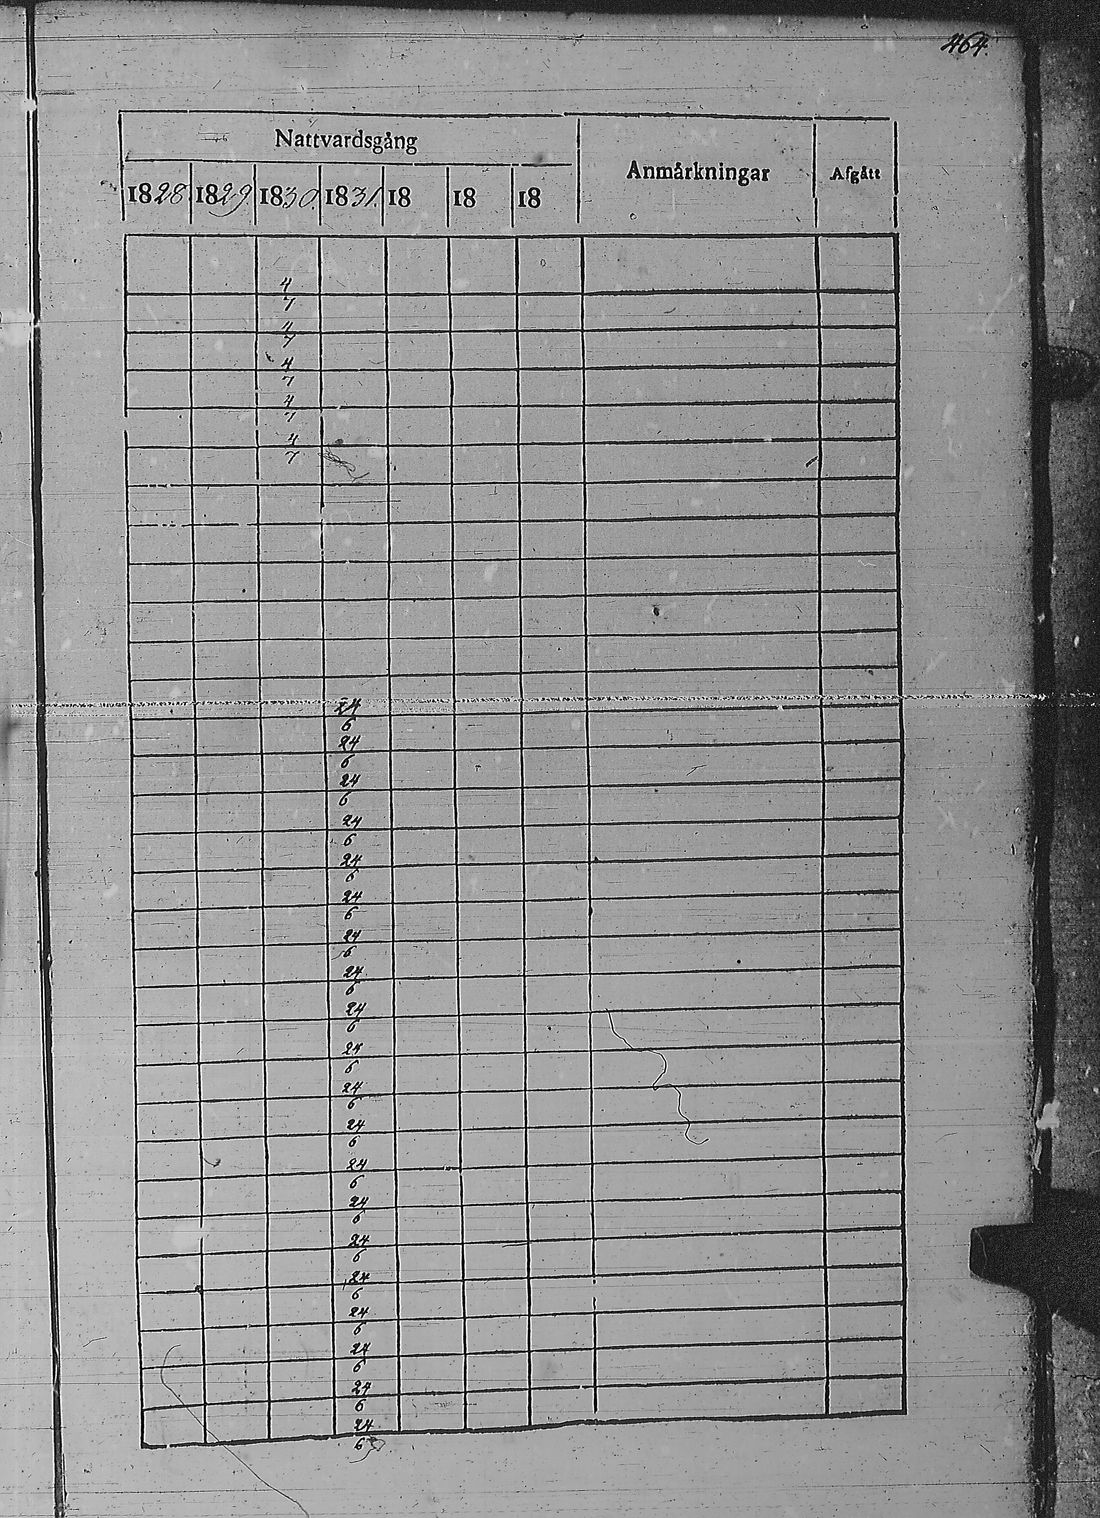 464.
Nattvardsgång
Anmårkningar
Afgått
1828. 1829. 1830. 1831. 18 18 18
4
7
4
7
4
7
4
7
4
7
24
6
24
6
24
6
24
6
24
6
24
6
24
6
24
6
24
6
24
6
24
6
24
6
24
6
24
6
24
6
24
6
24
6
24
6
24
6
24
6